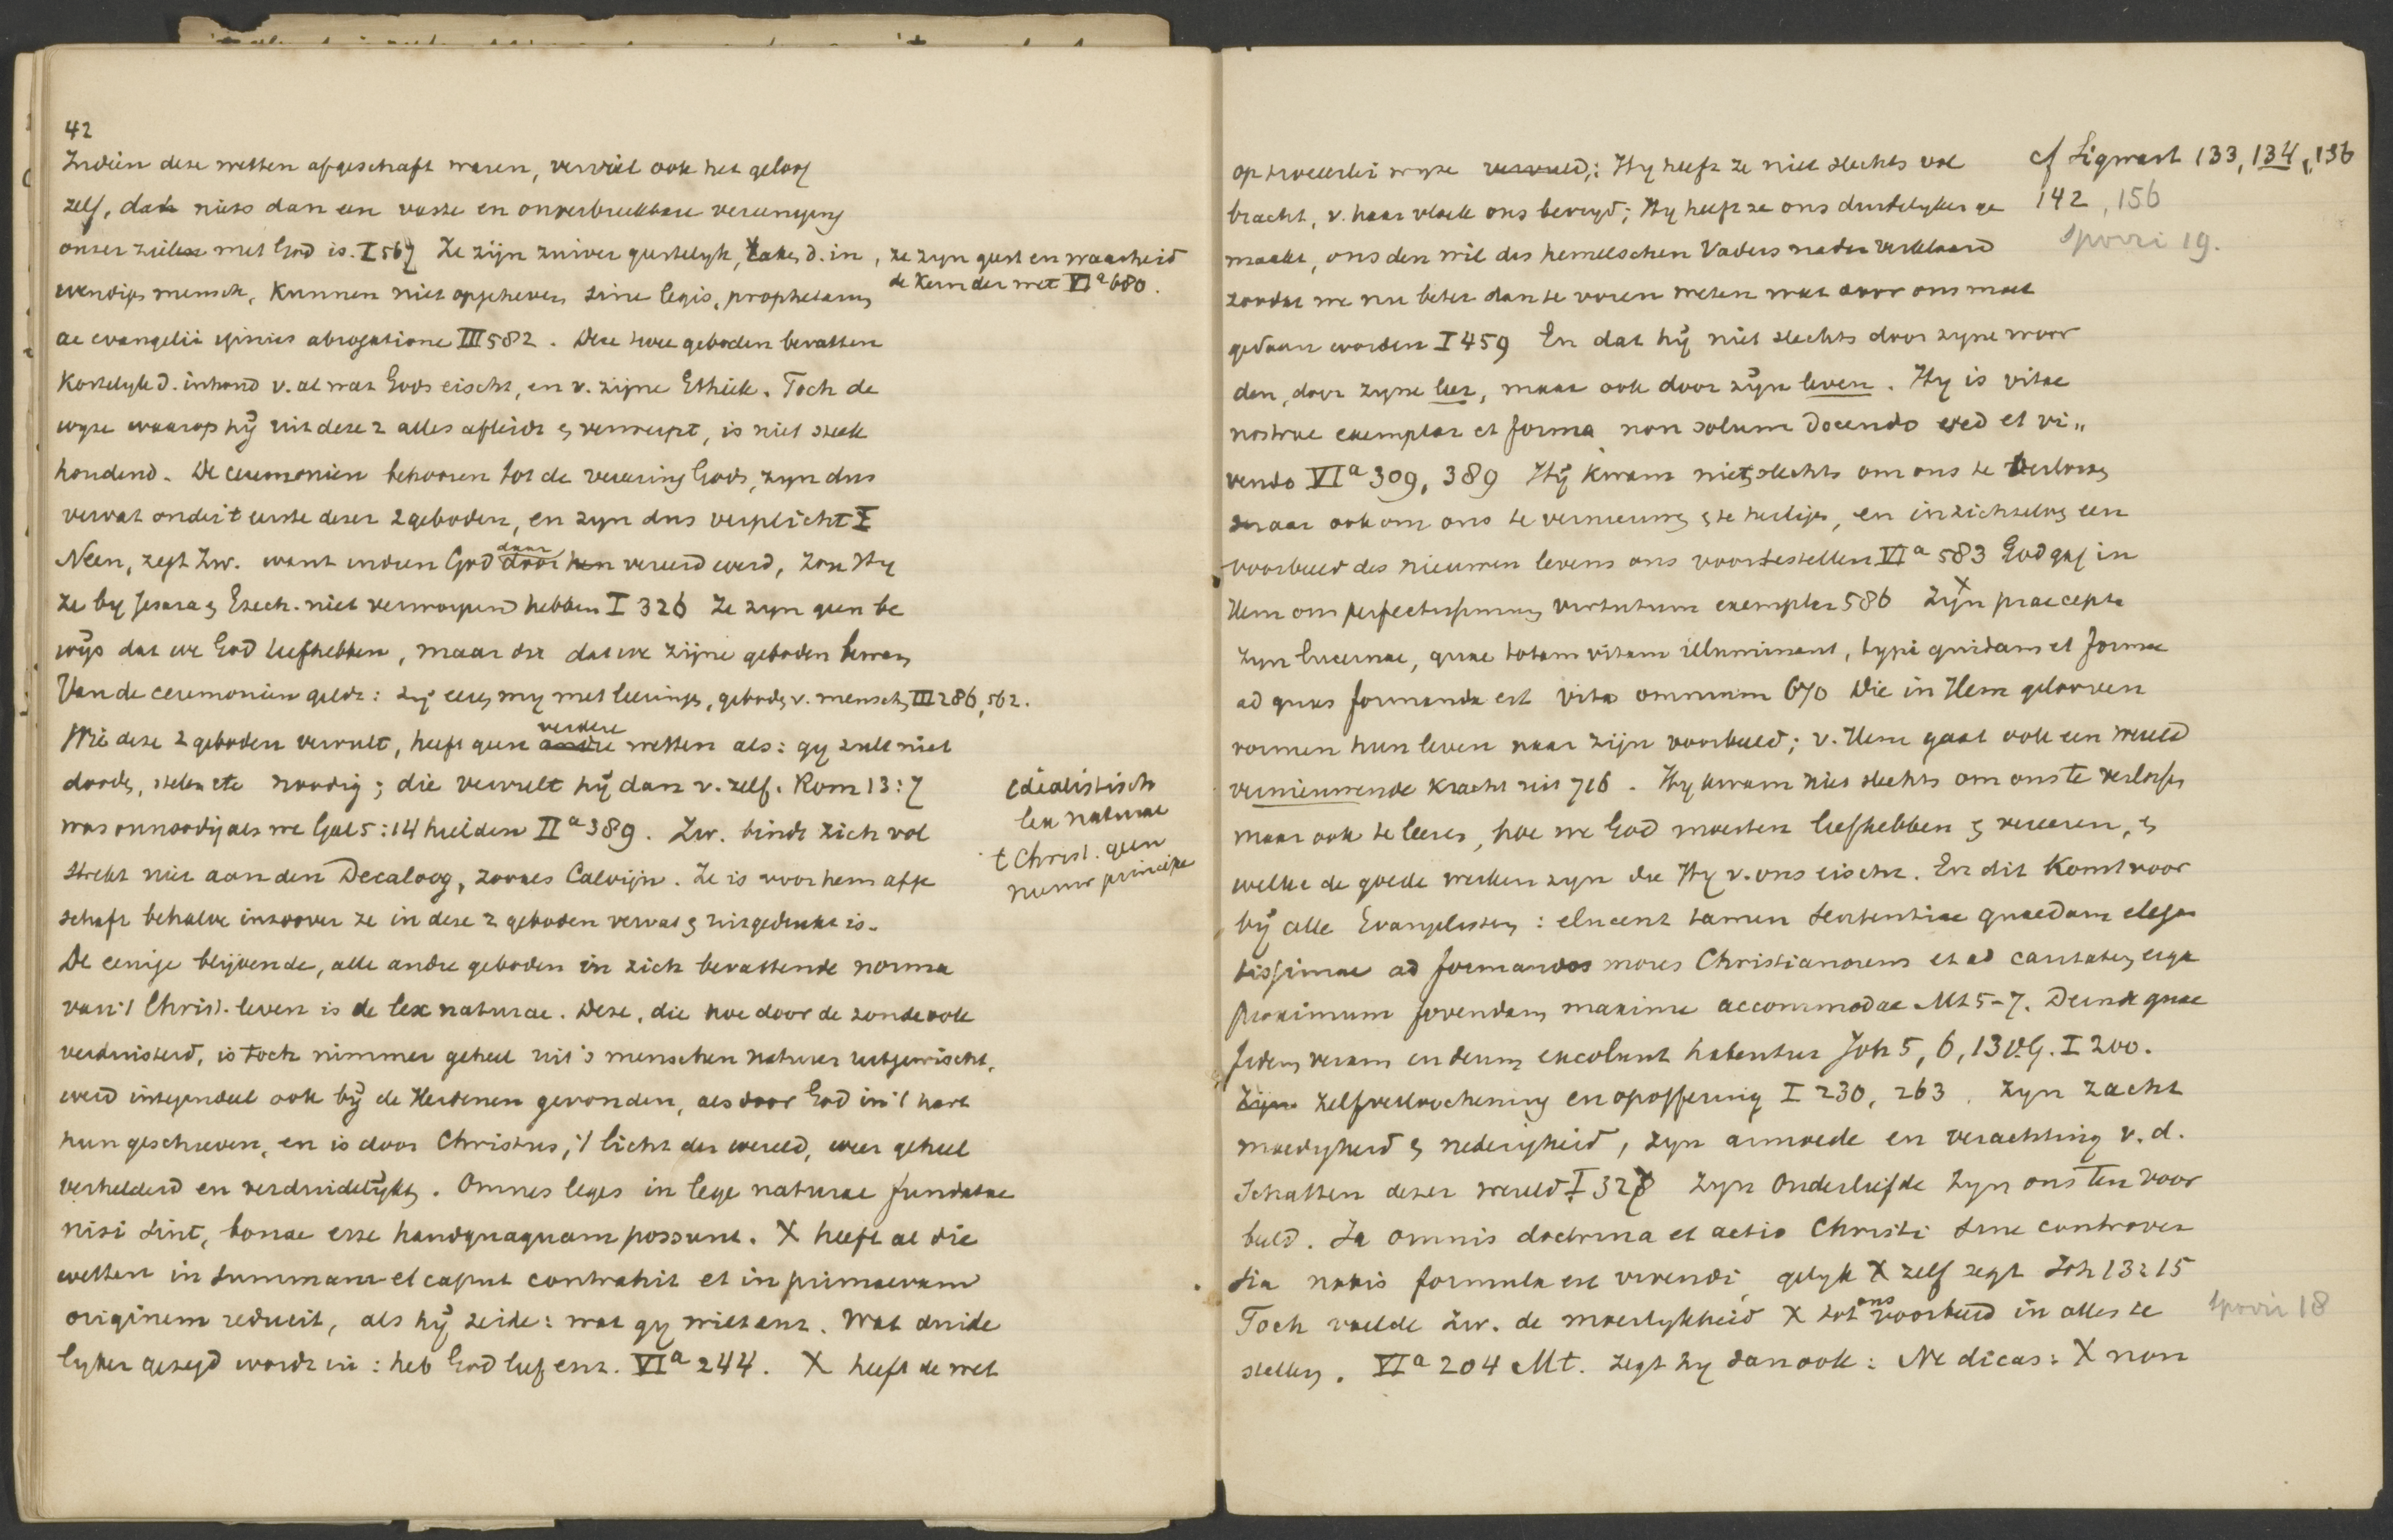 42
Indien deze wetten afgeschaft waren, verviel ook het geloof
zelf, dat niets dan een vaste en onverbreekbare vereeniging
onzer zielen met God is. I 567 Ze zijn zuiver geestelijk, raken d. in
wendigen mensch, kunnen niet opgeheven sine legis, prophetarum
ac evangelii ipsius abrogatione III 582. Deze twee geboden bevatten
kortelijk d. inhoud v. al wat Gods eischt, en v. zijne Ethiek. Toch de
wyze waarop hij uit deze 2 alles afleidt en verwerpt, is niet steek
houdend. De ceremonien behooren tot de vereering Gods, zyn dus
vervat onder 't eerste dezer 2 geboden, en zyn dus verplicht I
Neen, zegt Zw. want indien God door hen daar vereerd werd, zou Hy
ze by Jesaia en Ezech. niet verworpen hebben I 326 Ze zyn geen be
wijs dat we God liefhebben, maar dit dat we zijne geboden bewaren
Van de ceremonien geldt: zij eeren my met leeringen, geboden v. menschen III 286, 562.
Wie deze 2 geboden vervult, heeft geen andre verdere wetten als: gy zult niet
dooden, stelen etc noodig; die vervult hij dan v. zelf. Rom 13:7
was onnoodig als we Gal 5:14 hielden II a 389. Zw. bindt zich vol
strekt niet aan den Decaloog, zooals Calvijn. Ze is voor hem afge
schaft behalve inzoover ze in deze 2 geboden vervat en uitgedrukt is.
De eenige blijvende, alle andre geboden in zich bevattende norma
van 't Christ. leven is de lex naturae. Deze, die hoe door de zonde ook
verduisterd, is toch nimmer geheel uit 's menschen natuur uitgewischt,
werd integendeel ook bij de Heidenen gevonden, als door God in 't hart
hun geschreven, en is door Christus, 't licht der wereld, weer geheel
verhelderd en verduidelijkt. Omnes leges in lege naturae fundatae
nisi sint, bonae esse haudquaquam possunt. X heeft al die
wetten in summam et caput contrahit et in primaevam
originem reducit, als hij zeide: wat gy wilt enz. Wat duide
lyker gezegd wordt in: heb God lief enz. VI a 244. X heeft de wet
, ze zyn geest en waarheid
de kern der wet VI a 680.
idealistisch
lex naturae
't Christ. geen
nieuw principe
op tweeerlei wyze vervuld: Hy heeft ze niet slechts vol
bracht, v. haar vloek ons bevryd; Hy heeft ze ons duidelyker ge
maakt, ons den wil des hemelschen Vaders nader verklaard
zoodat we nu beter dan te voren weten wat door ons moet
gedaan worden I 459 En dat hij niet slechts door zyne woor
den, door zyne leer, maar ook door zijn leven. Hy is vitae
nostrae exemplar et forma non solum docendo sed et vi"
vendo VI a 309, 389 Hij kwam niet slechts om ons te verlossen
maar ook om ons te vernieuwen en te heiligen, en in zichzelven een
voorbeeld des nieuwen levens ons voortestellen VI a 583 God gaf in
Hem ons perfectissimum virtutum exemplar 586 Zijn praecepta
zyn lucernae, quae totam vitam illuminant, typi quidam et formae
ad quas formanda est vita omnium 670 Die in Hem gelooven
vormen hun leven naar zijn voorbeeld; v. Hem gaat ook een wereld
vernieuwende kracht uit 716. Hy kwam niet slechts om ons te verlossen
maar ook te leeren, hoe we God moesten liefhebben en vereeren, en
welke de goede werken zyn die Hy v. ons eischt. En dit komt voor
bij alle Evangelisten: elucent tamen sententiae quaedam elegan
tissimae ad formandos mores Christianorum et ad caritatem erga
proximum fovendam maxime accommodae Mt 5-7. Deinde quae
fidem veram in deum excolunt habentur Joh 5, 6, 13 v.G. I 200.
Zijn zelfverloochening en opoffering I 230, 263. Zyn zacht
moedigheid en nederigheid, zyn armoede en verachting v. d.
schatten dezer wereld I 328 zyn Ouderliefde zyn ons ten voor
beeld. Ja omnis doctrina et actio Christi sine controver
sia nobis formula est vivendi, gelyk X zelf zegt Joh 13:15
Toch voelde Zw. de moeilykheid X tot ons voorbeeld in alles te
stellen. VI a 204 Mt. zegt hy dan ook: Ne dicas: X non
cf Sigwart 133, 134, 136
142, 156
Spörri 19.
Spörri 18